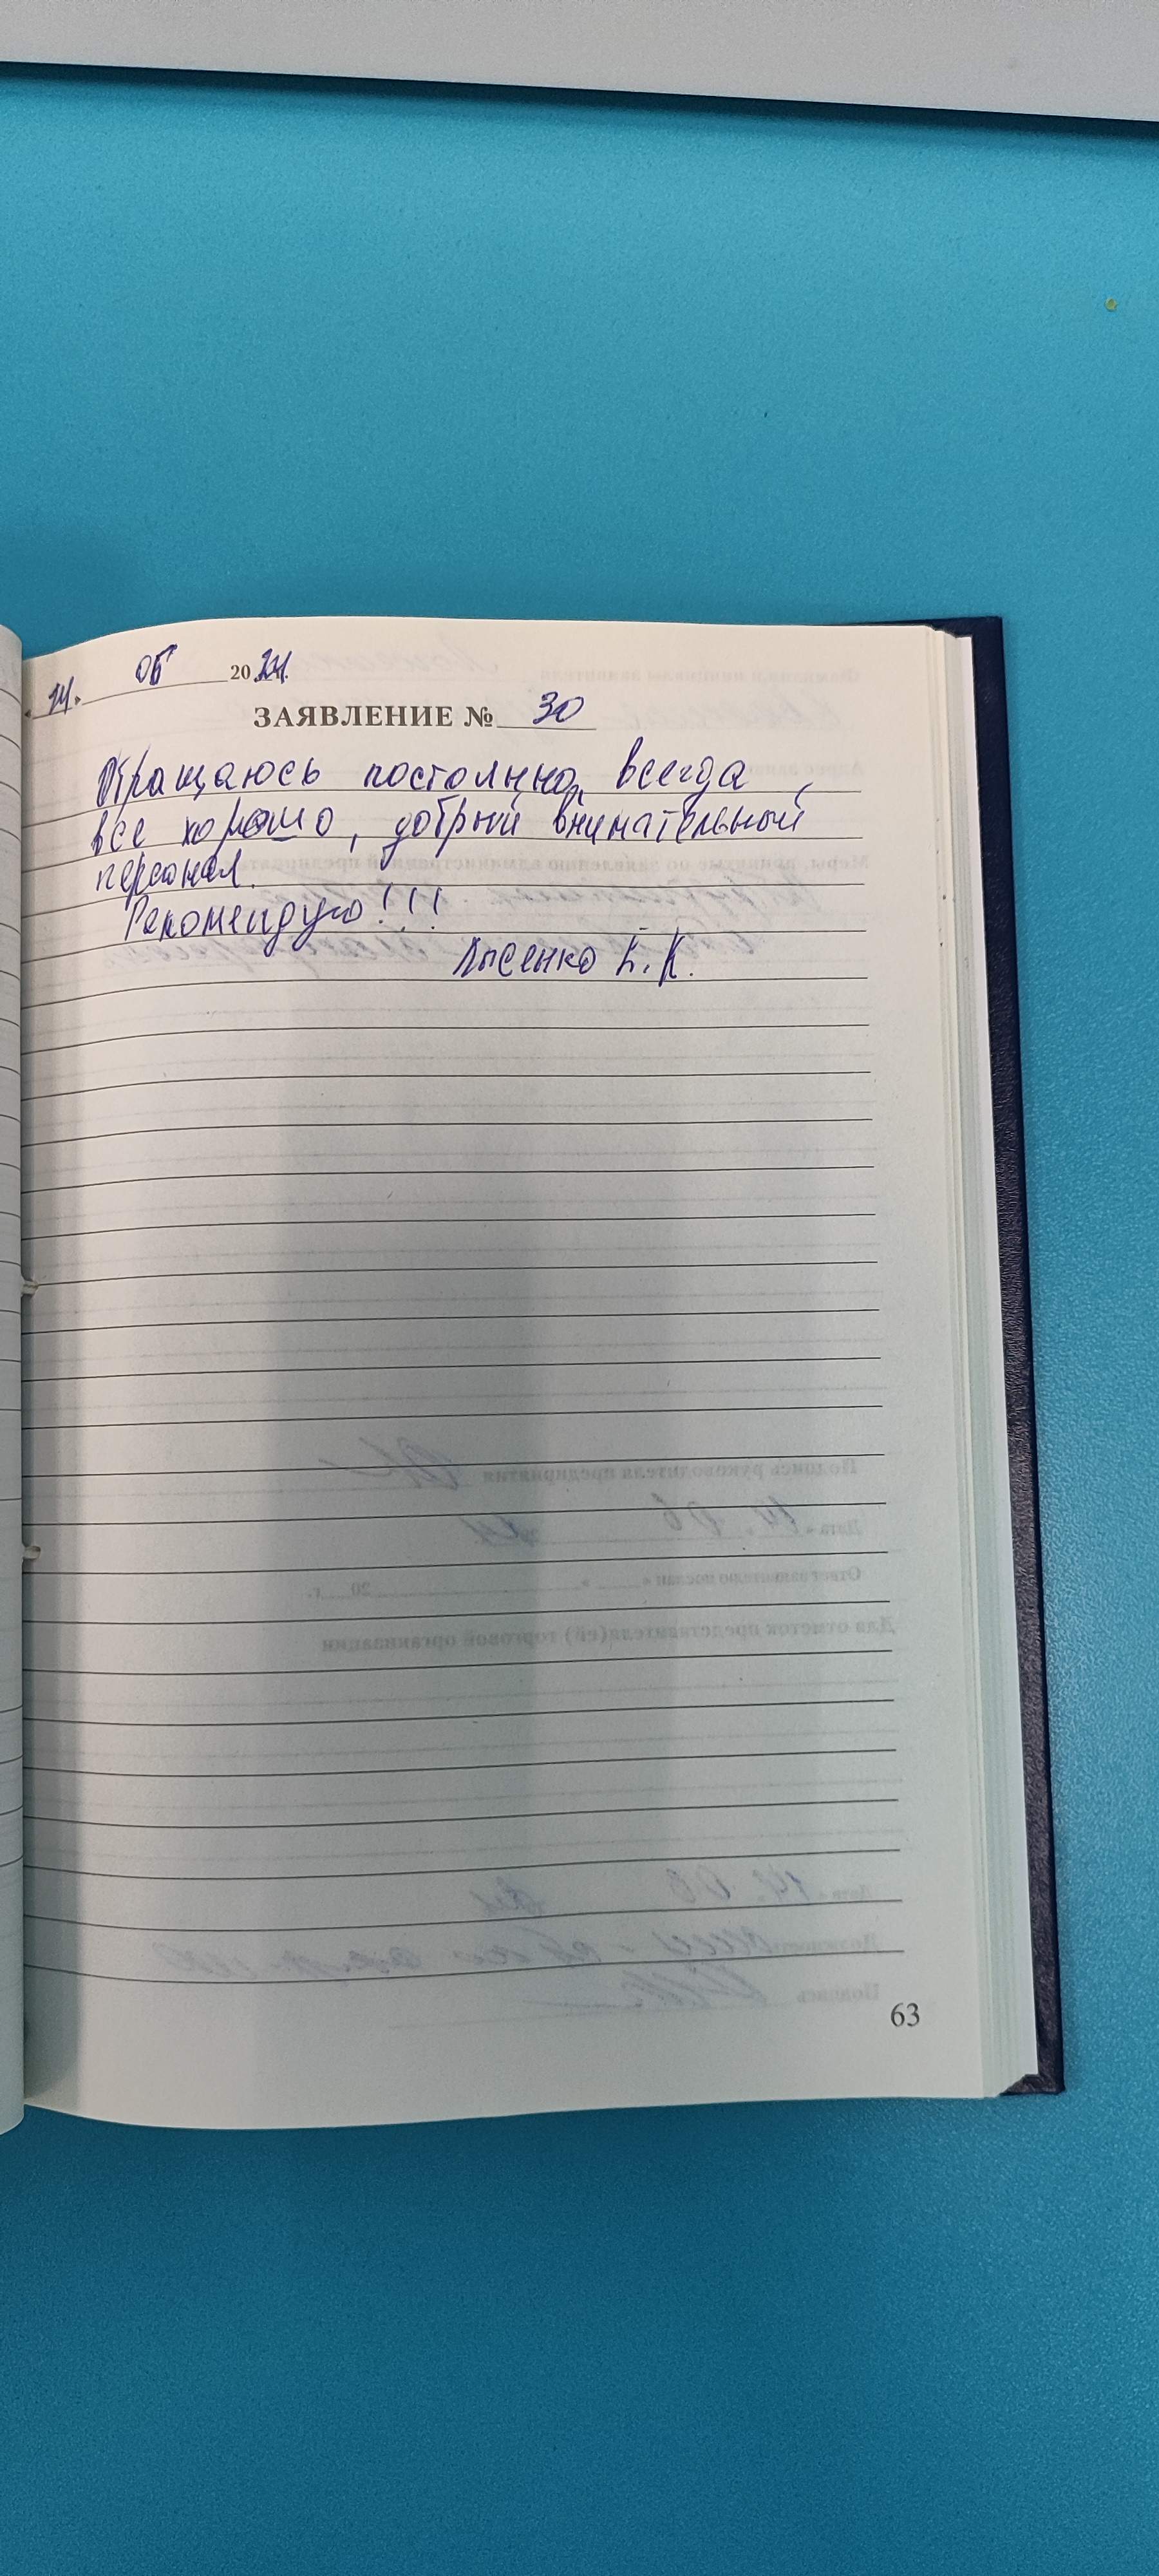 14. 06 2024.
ЗАЯВЛЕНИЕ № 30
Обращаюсь постоянно, всегда
все хорошо, добрый внимательный
персонал.
Рекомендую!!!
Лысенко Е. К.
63